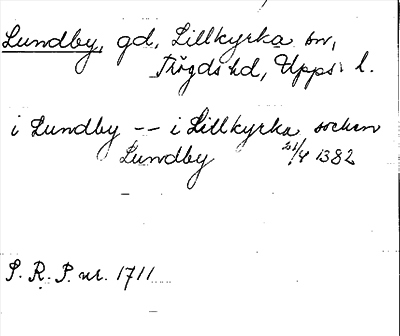 Lundby, gd, Lillkyrka sn,
Trögds hd, Upps. l.
i Lundby -- i Lillkyrka socken
Lundby 21/4 1382
S. R. P. nr. 1711